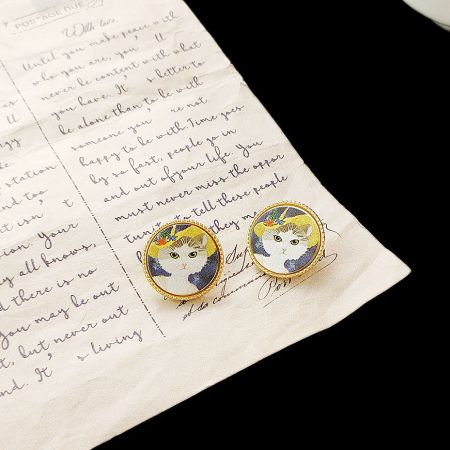 POSTAGE DUE
With love,
Until you make peace with
who you are, you' ll
never be content with what
you have. It' s better to
be alone than to be with
someone you' re not
happy to be with Time goes
by so fast, people go in
and out of your life. You
must never miss the oppor
to tell these people
they me
ll
station
too
it isn' t
tion. Your
y all knows,
nd there is no
You may be out
t, but never out
nd. It' s living